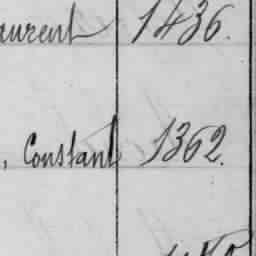 aurent 1436.
, Constant 1362.